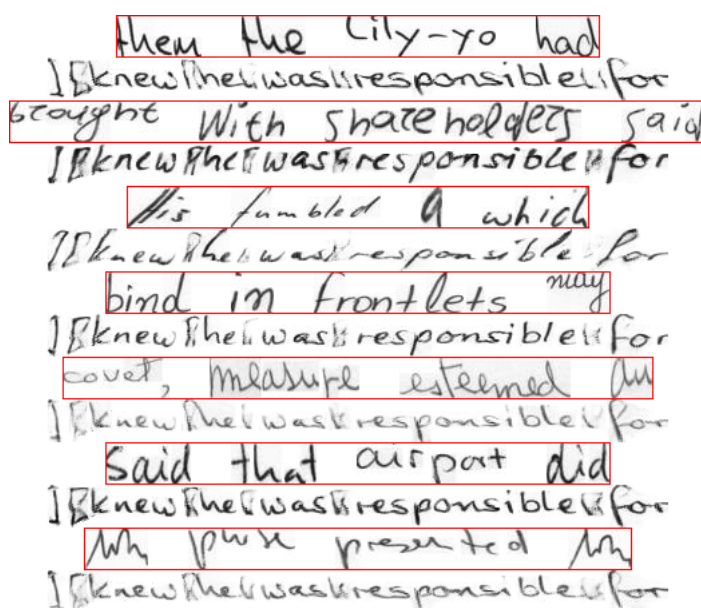 them the Lily-yo had
I knew he was responsible for
brought With shareholders said
I knew he was responsible for
His fumbled a which
I knew he was responsible for
bind in frontlets may
I knew he was responsible for
covet, measure esteemed an
I knew he was responsible for
said that airport did
I knew he was responsible for
purse presented
I knew he was responsible for